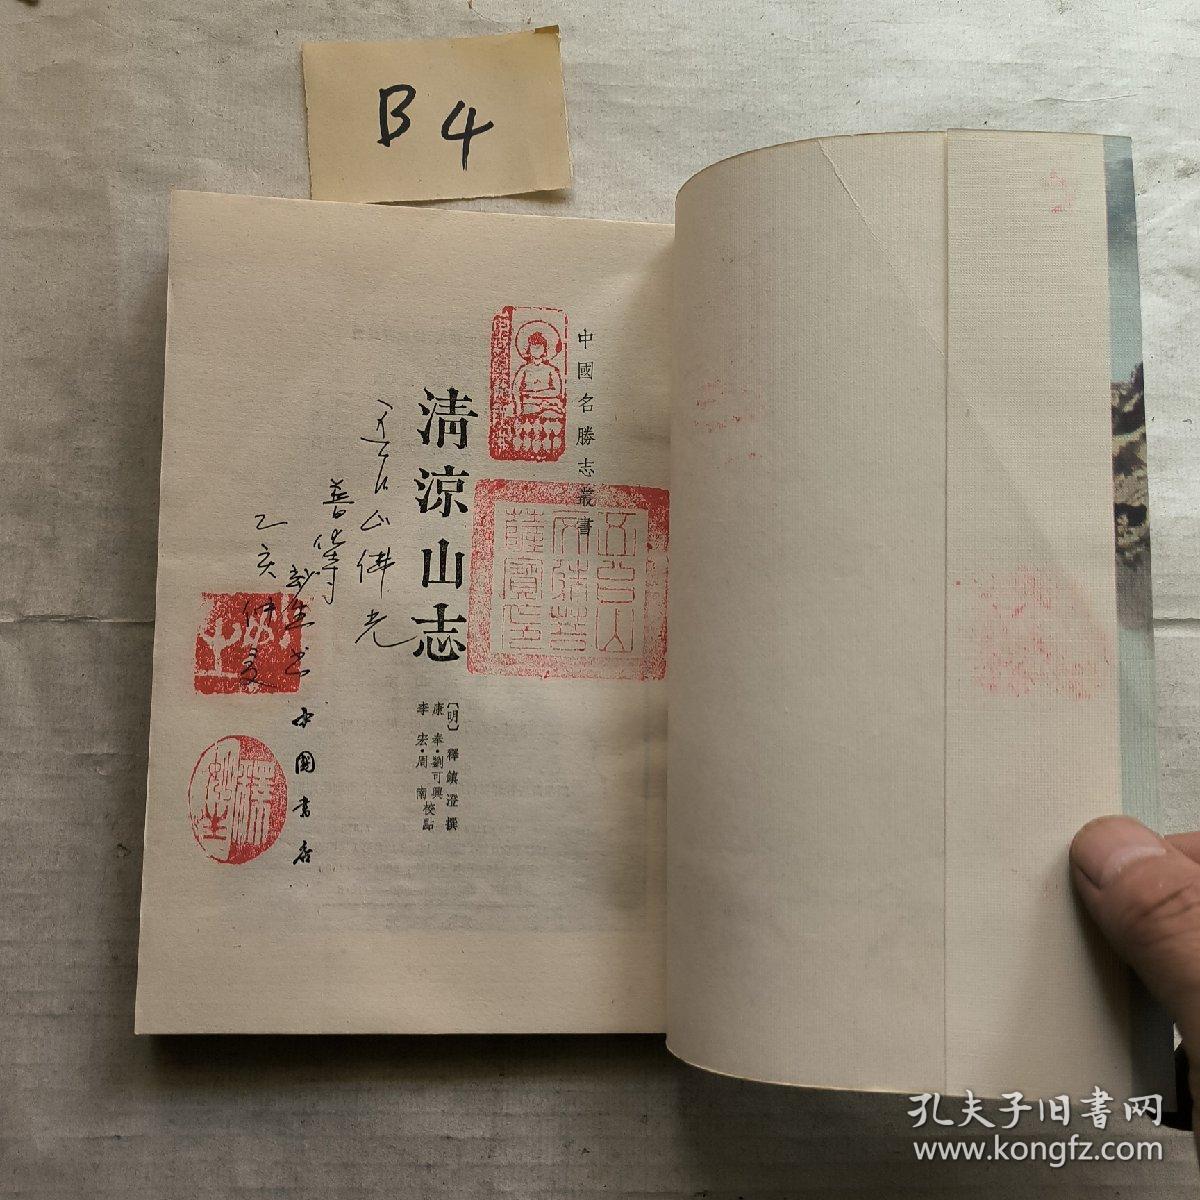 B4
中國名勝志叢書
清涼山志
〔明〕釋鎮澄撰
康奉·劉可興
李宏·周南校點
中國書店
山佛光
普化寺
妙生书
乙亥仲夏
五台山
文殊菩
薩寶印
孔夫子旧書网
www.kongfz.com